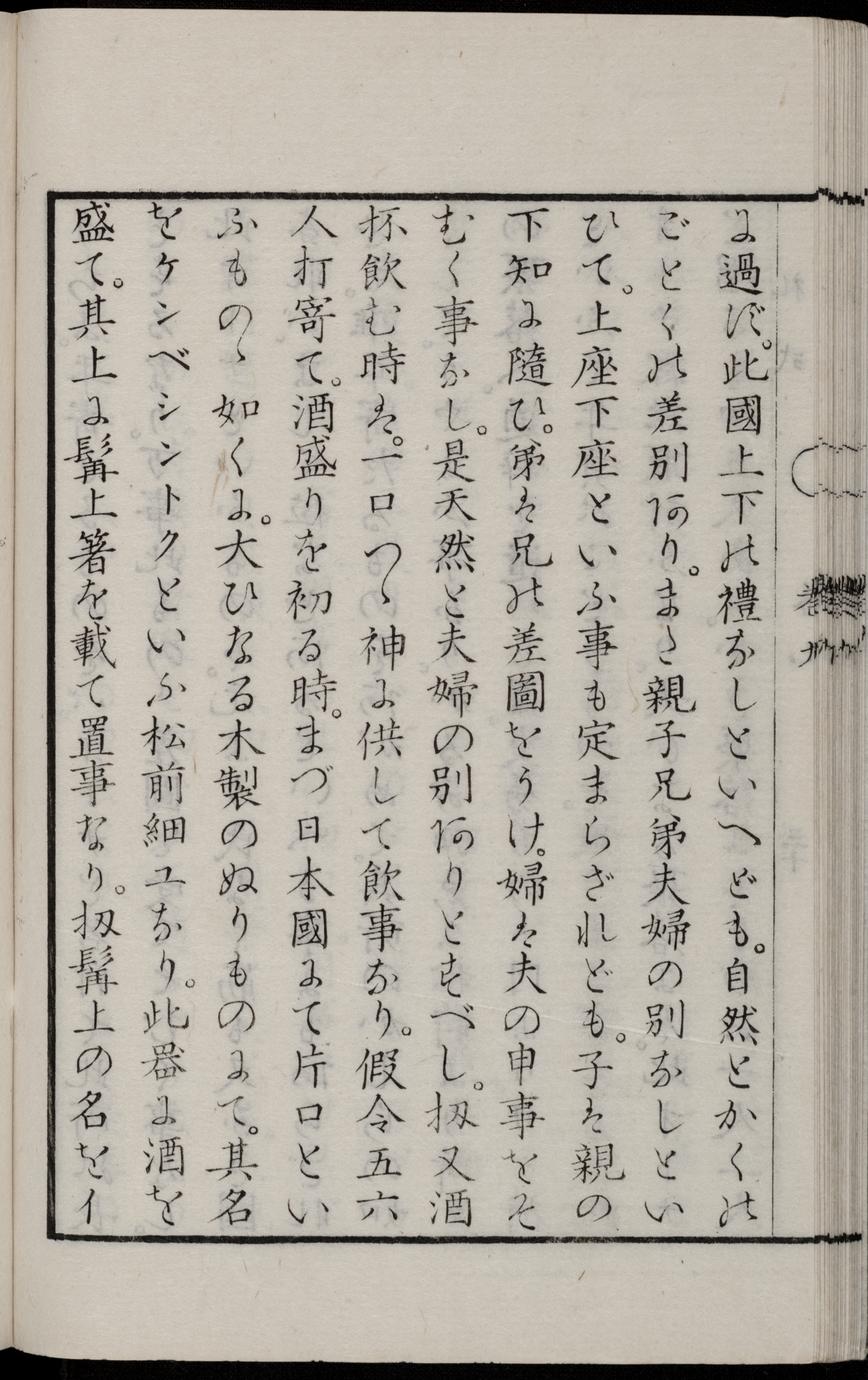 に過ず。此國上下の禮なしといへども。自然とかくの
ごとくの差別あり。また親子兄弟夫婦の別なしとい
ひて。上座下座といふ事も定まらざれども。子は親の
下知に隨ひ。弟は兄の差圖をうけ。婦は夫の申事をそ
むく事なし。是天然と夫婦の別ありとすべし。扨又酒
杯飲む時は。一口つゝ神に供して飲事なり。假令五六
人打寄て。酒盛りを初る時。まづ日本國にて片口とい
ふものゝ如くに。大ひなる木製のぬりものにて。其名
をケシベシントクといふ松前細工なり。此器に酒を
盛て。其上に髯上箸を載て置事なり。扨髯上の名をイ